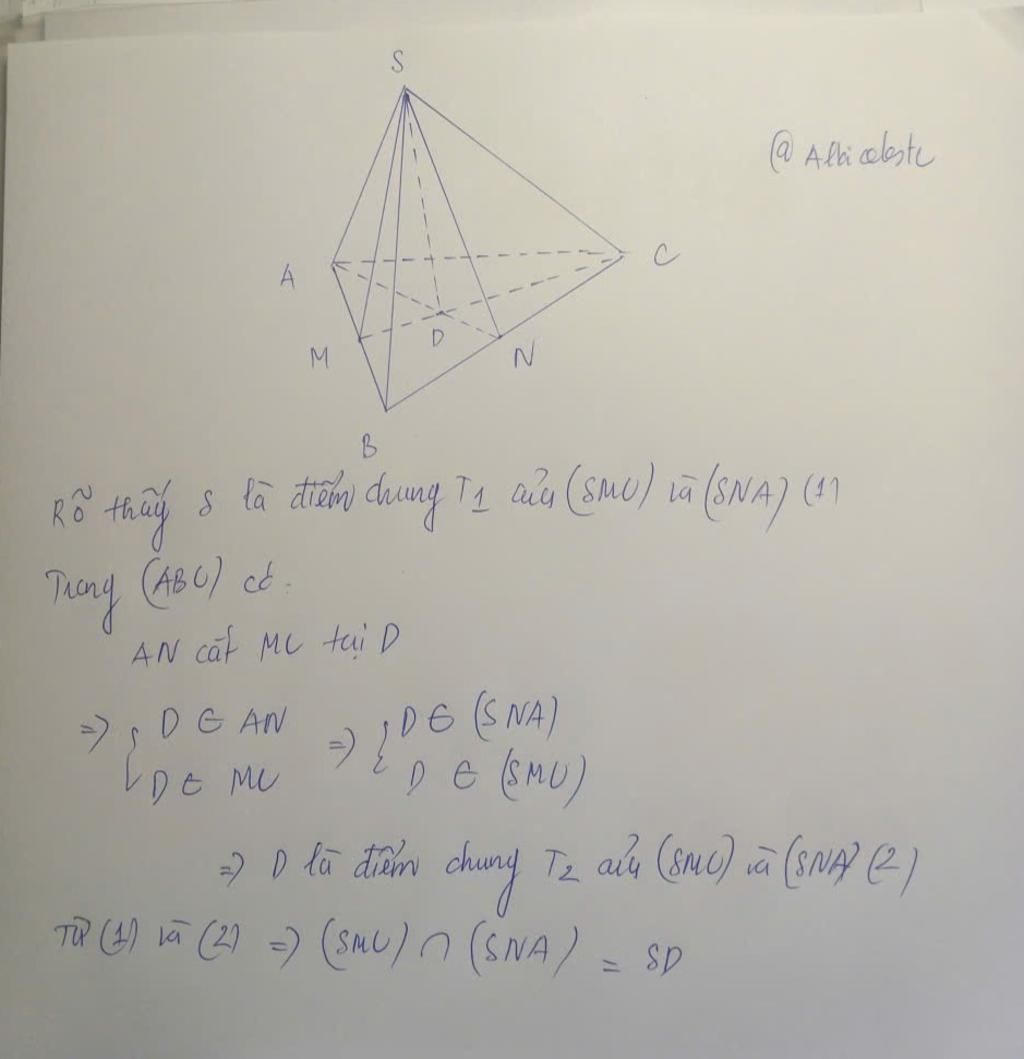 S
@Albiceleste
A
C
M
D
N
B
Rõ thấy S là điểm chung T1 của (SMC) và (SNA) (1)
Trong (ABC) có:
AN cắt MC tại D
=> { D ∈ AN => { D ∈ (SNA)
D ∈ MC D ∈ (SMC)
=> D là điểm chung T2 của (SMC) và (SNA) (2)
Từ (1) và (2) => (SMC) ∩ (SNA) = SD